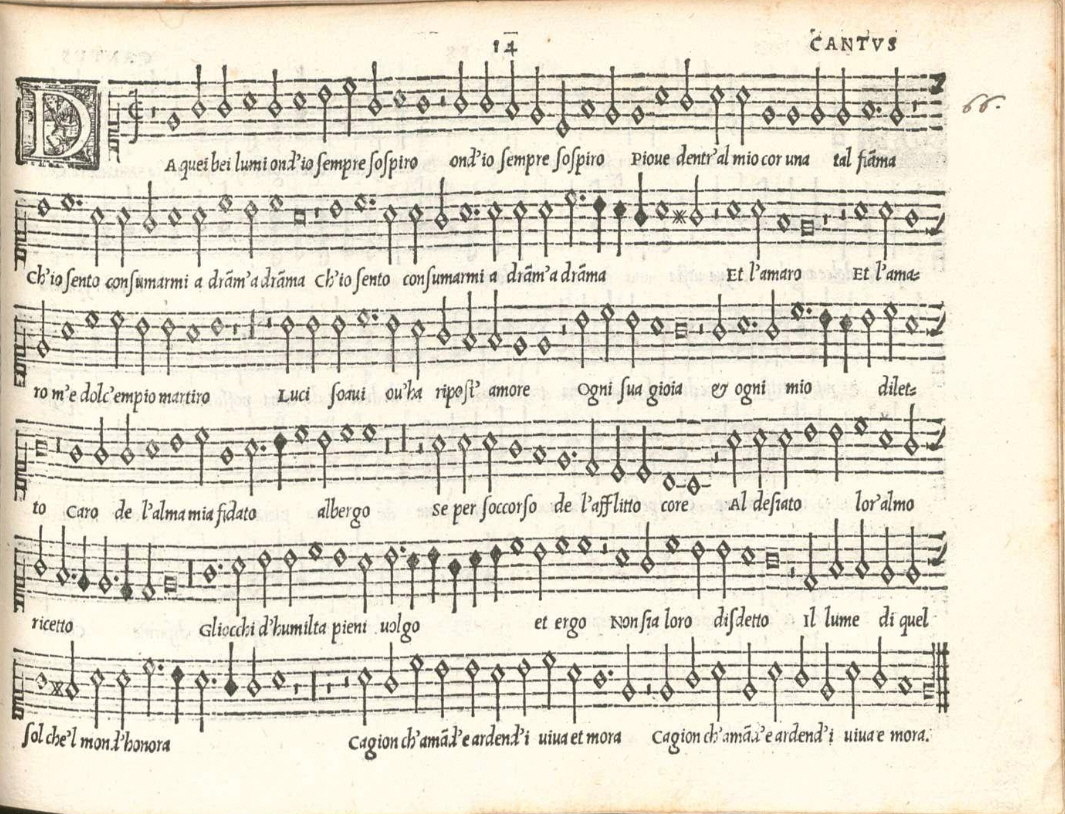 14 CANTVS
66.
DA quei bei lumi ond'io sempre sospiro ond'io sempre sospiro Pioue dentr'al mio cor una tal fiāma
Ch'io sento consumarmi a drām'a drāma Ch'io sento consumarmi a drām'a drāma Et l'amaro Et l'ama=
ro m'e dolc'empio martiro Luci soaui ou'ha ripost' amore Ogni sua gioia & ogni mio dilet=
to Caro de l'alma mia fidato albergo Se per soccorso de l'afflitto core Al desiato lor'almo
ricetto Gliocchi d'humilta pieni uolgo et ergo Non fia loro disdetto Il lume di quel
sol che'l mond'honora Cagion ch'amād'e ardend'i uiua et mora Cagion ch'amād'e ardend'i uiua e mora.